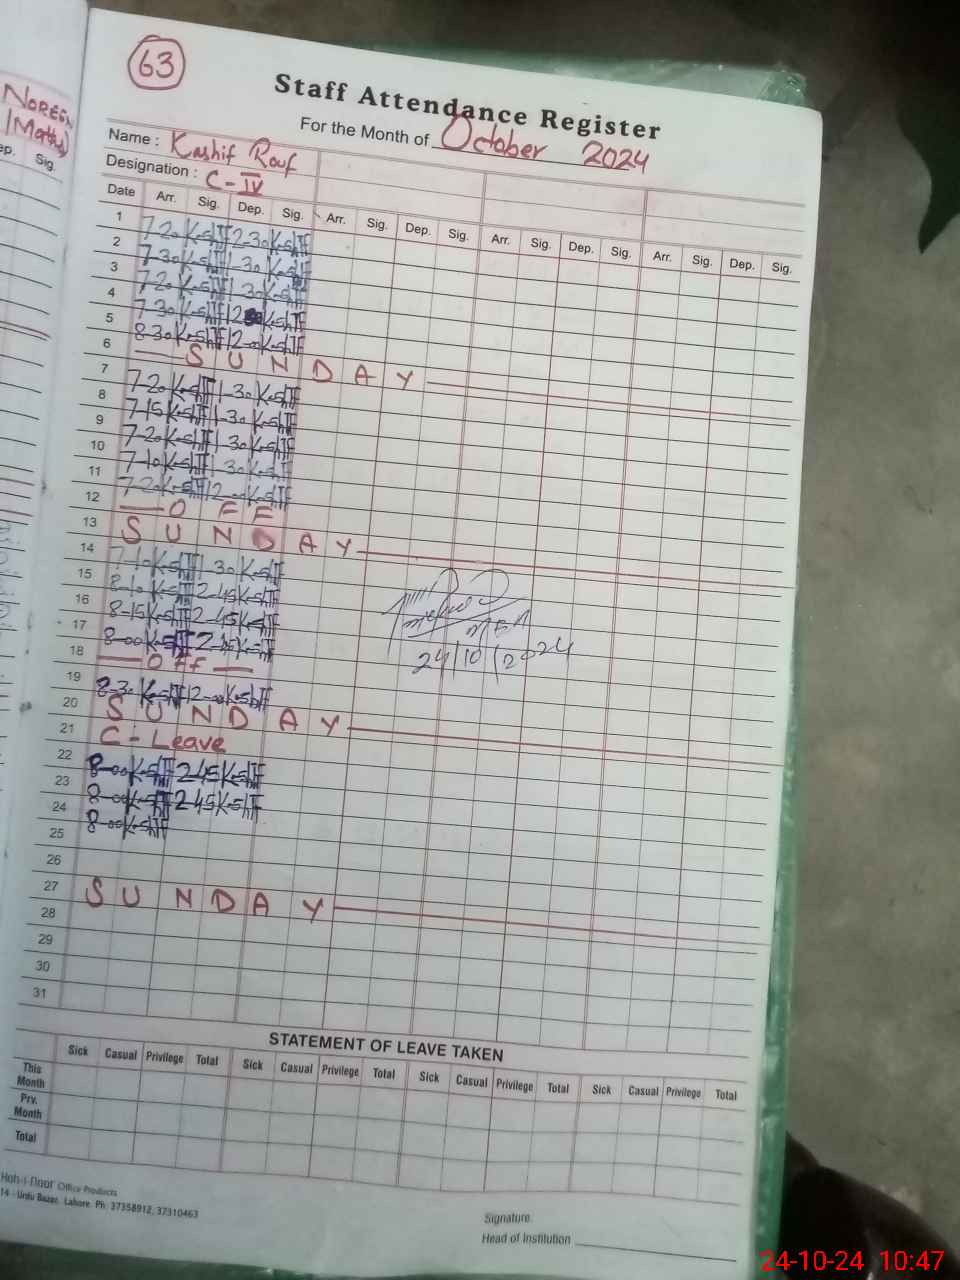 63
Staff Attendance Register
For the Month of October 2024
NOREEN
(Maths)
ep. Sig.
Name : Kashif Rouf
Designation : C-IV
Date Arr. Sig. Dep. Sig. Arr. Sig. Dep. Sig. Arr. Sig. Dep. Sig. Arr. Sig. Dep. Sig.
1 7-20 KashIF 12-30 KashIF
2 7-30 KashIF 1-30 KashIF
3 7-20 KashIF 1-30 KashIF
4 7-30 KashIF 12 KashIF
5 8-30 KashIF 12-00 KashIF
6 SUNDAY
7 7-20 KashIF 1-30 KashIF
8 7-15 KashIF 1-30 KashIF
9 7-20 KashIF 1-30 KashIF
10 7-10 KashIF 1-30 KashIF
11 7-20 KashIF 12-00 KashIF
12 OFF
13 SUNDAY
14 7-10 KashIF 1-30 KashIF
15 8-10 KashIF 2-45 KashIF
16 8-15 KashIF 2-45 KashIF
17 8-00 KashIF 2-45 KashIF
18 OFF
19 8-30 KashIF 12-00 KashIF
20 SUNDAY
21 C-Leave
22 8-00 KashIF 2-45 KashIF
23 8-00 KashIF 2-45 KashIF
24 8-00 KashIF
25
26
27 SUNDAY
28
29
30
31
MEA
24/10/2024
STATEMENT OF LEAVE TAKEN
Sick Casual Privilege Total Sick Casual Privilege Total Sick Casual Privilege Total Sick Casual Privilege Total
This Month
Prv. Month
Total
Koh-i-Noor Office Products
14 - Urdu Bazar, Lahore. Ph: 37358912, 37310463
Signature
Head of Institution
24-10-24 10:47